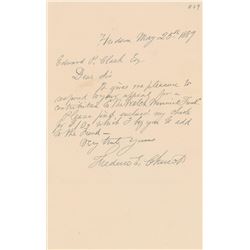 829
Hudson May 25th 1889
Edward P. Clark Esq.
Dear Sir
It gives me pleasure to
respond to your appeal for a
contribution to the Welch Memorial Fund
Please find enclosed my check
for which I beg you to add
to the Fund—
Very truly yours
Frederic E. Church